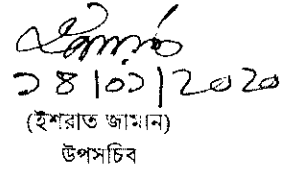 ১৪/০১/২০২০
(ইশরাত জামান)
উপসচিব